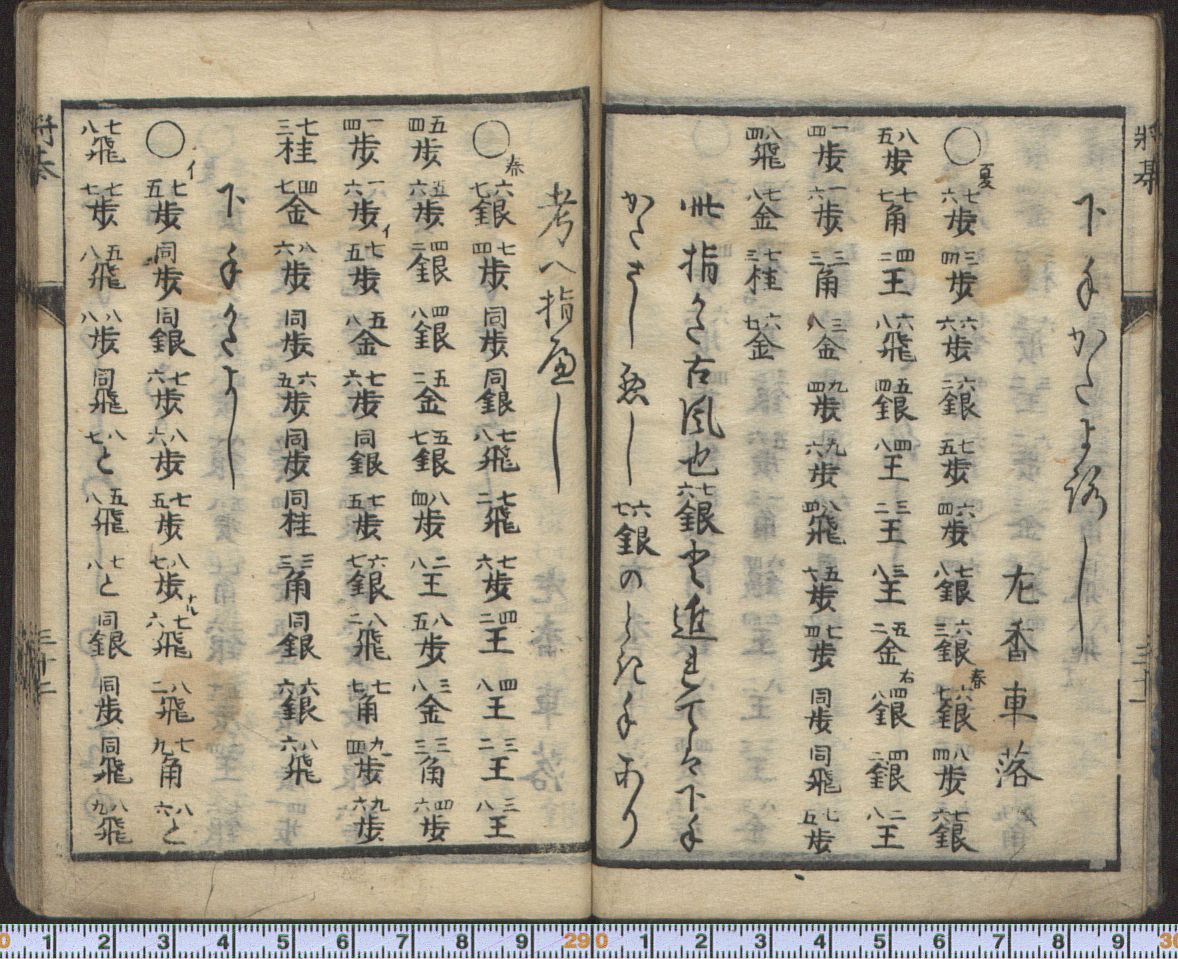 将棊 三十一
下手かたよろし
左香車落
○夏 七六歩 三四歩 六六歩 六二銀 七五歩 六四歩 七八銀 六三銀 春 六七銀 八四歩 七六銀
八五歩 七七角 四二王 六八飛 五四銀 四八王 三二王 三八王 五二金右 四八銀 四二銀 二八王
一四歩 一六歩 三三角 三八金 九四歩 九六歩 八四飛 五六歩 七四歩 同歩 同飛 七五歩
八四飛 七八金 七三桂 六七金
此指かた古風也七六銀と進まれては下手
かたさし悪し六七銀のときに手あり
考へ指へし
○春 六七銀 七四歩 同歩 同銀 七八飛 七二飛 七六歩 四二王 四八王 三二王 三八王
五四歩 五六歩 四二銀 四八銀 五二金 五七銀 八四歩 二八王 八五歩 三八金 三三角 四六歩
一四歩 一六歩 イ 七五歩 五八金 七六歩 同銀 七五歩 六七銀 八二飛 七七角 九四歩 九六歩
七三桂 四七金 八六歩 同歩 六五歩 同歩 同桂 三三角 同銀 六六銀 八六飛
下手かたよし
○イ 七五歩 同歩 同銀 七六歩 八六歩 七五歩 八七歩ナル 七六飛 八二飛 七九角 八六と
七八飛 七七歩 五八飛 八八歩 同飛 八七と 五八飛 七八と 同銀 同歩 同飛 八九飛
将棊 三十二